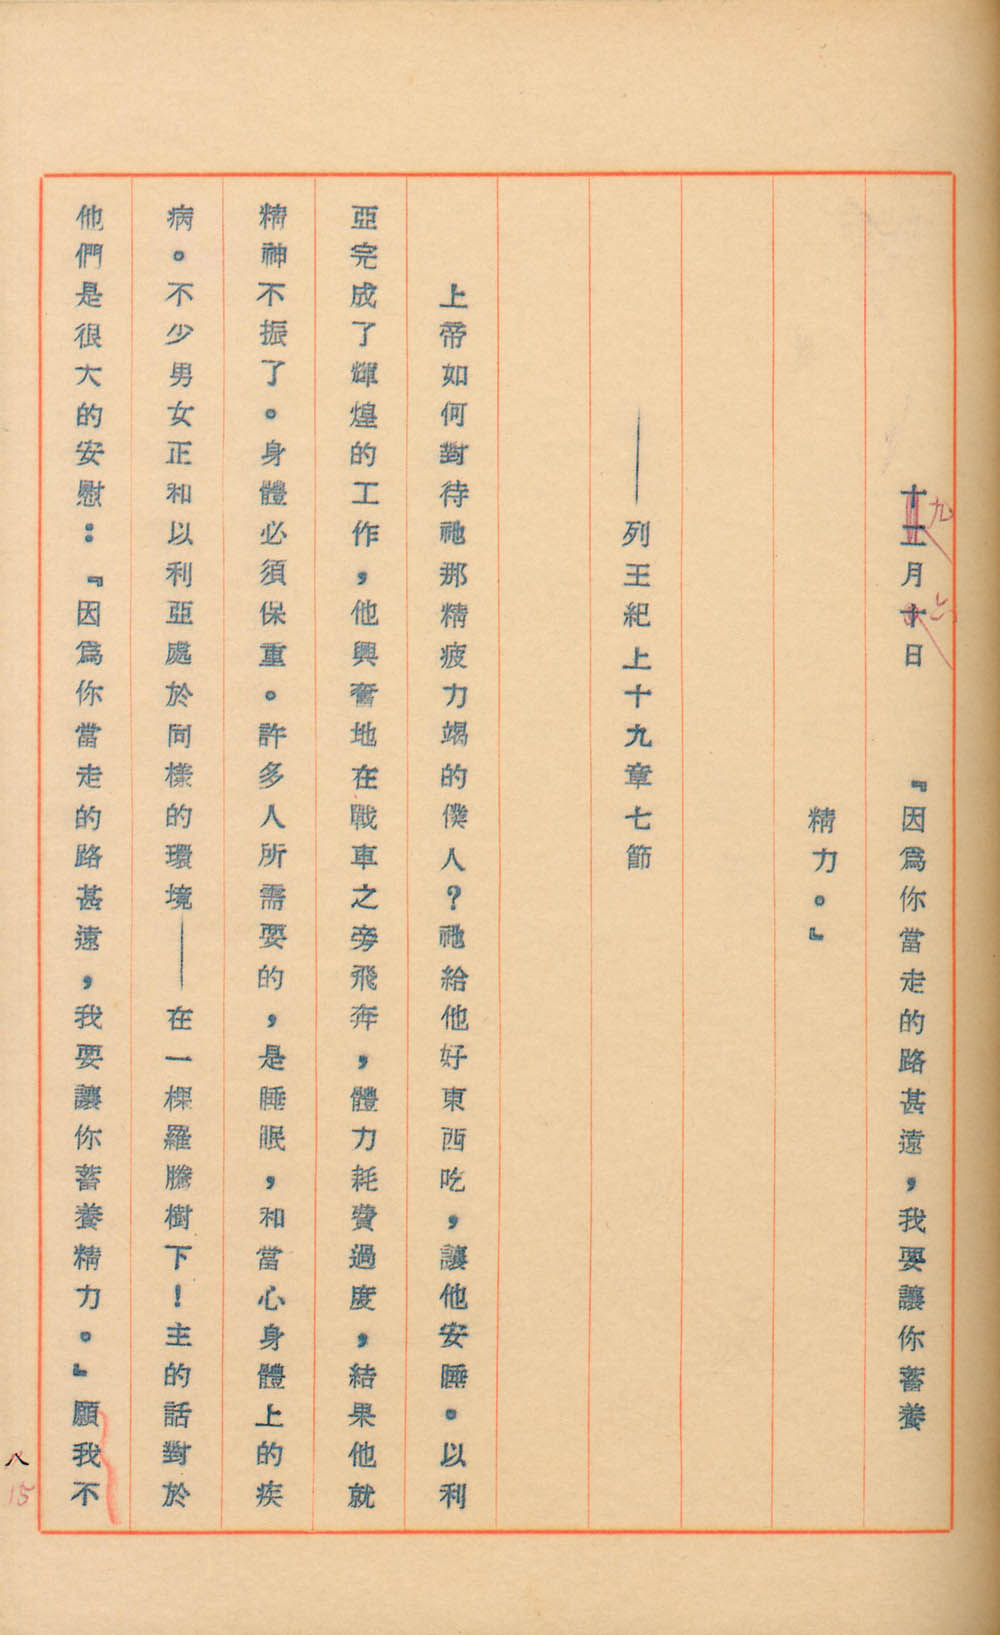 十一月十日　　『因爲你當走的路甚遠，我要讓你蓄養
九
六
精力。』
——列王紀上十九章七節
上帝如何對待祂那精疲力竭的僕人？祂給他好東西吃，讓他安睡。以利
亞完成了輝煌的工作，他興奮地在戰車之旁飛奔，體力耗費過度，結果他就
精神不振了。身體必須保重。許多人所需要的，是睡眠，和當心身體上的疾
病。不少男女正和以利亞處於同樣的環境——在一棵羅騰樹下！主的話對於
他們是很大的安慰：『因爲你當走的路甚遠，我要讓你蓄養精力。』願我不
八
15